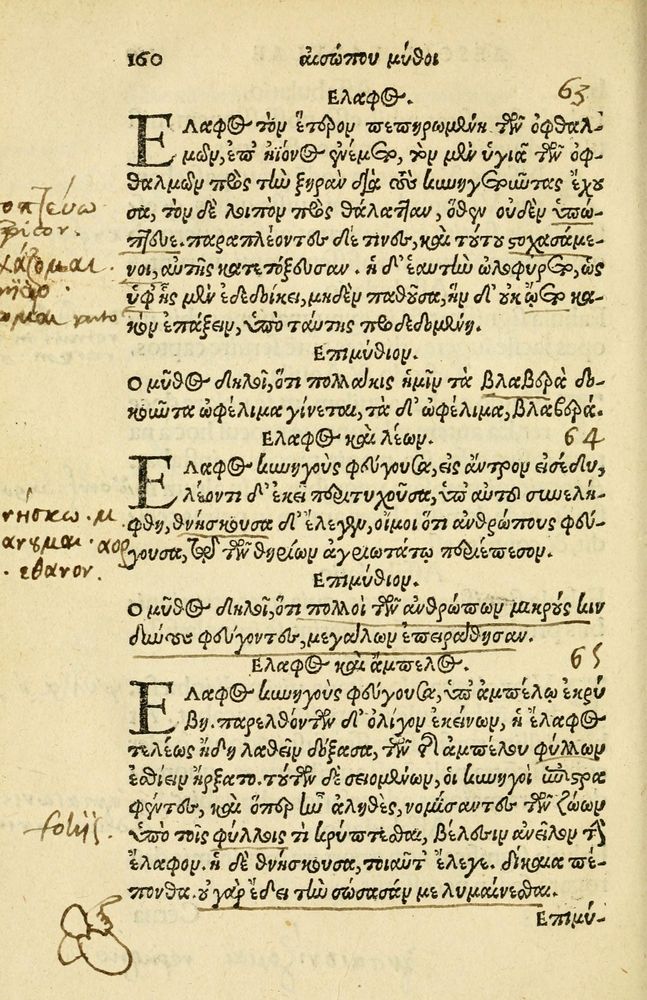 160 αἰσώπου μῦθοι
Ελαφος. 63
Ελαφος τὸν ἕτερον πεπηρωμένη τῶν ὀφθαλ-
μῶν, ἐπ' ἠϊόνος ἐνέμετο, τὸν μὲν ὑγιᾶ τῶν ὀφ-
θαλμῶν πρὸς τὴν ξηρὰν διὰ τοὺς κυνηγετοῦντας ἔχου
σα, τὸν δὲ λοιπὸν πρὸς θάλατταν, ὅθεν οὐδὲν ὑπώ-
πτευε. παραπλέοντες δέ τινες, καὶ τοῦτο στοχασάμε-
νοι, αὐτῆς κατετόξευσαν. ἡ δ' ἑαυτὴν ὠλοφύρετο, ὡς
ὑφ' ἧς μὲν ἐδεδοίκει, μηδὲν παθοῦσα, ἣν δ' οὐκ ᾤετο κα-
κὸν ἐπάξειν, ὑπὸ ταύτης προδεδομένη.
Επιμύθιον.
Ο μῦθος δηλοῖ, ὅτι πολλάκις ἡμῖν τὰ βλαβερὰ δο-
κοῦντα ὠφέλιμα γίνεται, τὰ δ' ὠφέλιμα, βλαβερά.
Ελαφος καὶ λέων. 64
Ελαφος κυνηγοὺς φεύγουσα, εἰς ἄντρον εἰσέδυ,
λέοντι δ' ἐκεῖ περιτυχοῦσα, ὑπ' αὐτοῦ συνελή-
φθη, θνήσκουσα δ' ἔλεγεν, οἴμοι ὅτι ἀνθρώπους φεύ-
γουσα, τῷ τῶν θηρίων ἀγριωτάτῳ περιέπεσον.
Επιμύθιον.
Ο μῦθος δηλοῖ, ὅτι πολλοὶ τῶν ἀνθρώπων μικροὺς κιν
δύνους φεύγοντες, μεγάλων ἐπειράθησαν.
Ελαφος καὶ ἄμπελος. 65
Ελαφος κυνηγοὺς φεύγουσα, ὑπ' ἀμπέλῳ ἐκρύ
βη. παρελθόντων δ' ὀλίγον ἐκείνων, ἡ ἔλαφος
τελέως ἤδη λαθεῖν δόξασα, τῶν τῆς ἀμπέλου φύλλων
ἐσθίειν ἤρξατο. τούτων δὲ σειομένων, οἱ κυνηγοὶ ἐπιστρα
φέντες, καὶ ὅπερ ἦν ἀληθὲς, νομίσαντες τῶν ζώων
ὑπὸ τοῖς φύλλοις τὶ κρύπτεσθαι, βέλεσιν ἀνεῖλον τὴν
ἔλαφον. ἡ δὲ θνήσκουσα, τοιαῦτ' ἔλεγε. δίκαια πέ-
πονθα. οὐ γὰρ ἔδει τὴν σώσασάν με λυμαίνεσθαι.
Επιμύ-
οπτεύω
χάζομαι.
νήσκω. μ.
ανουμαι. αορ
. εθανον.
foliis.